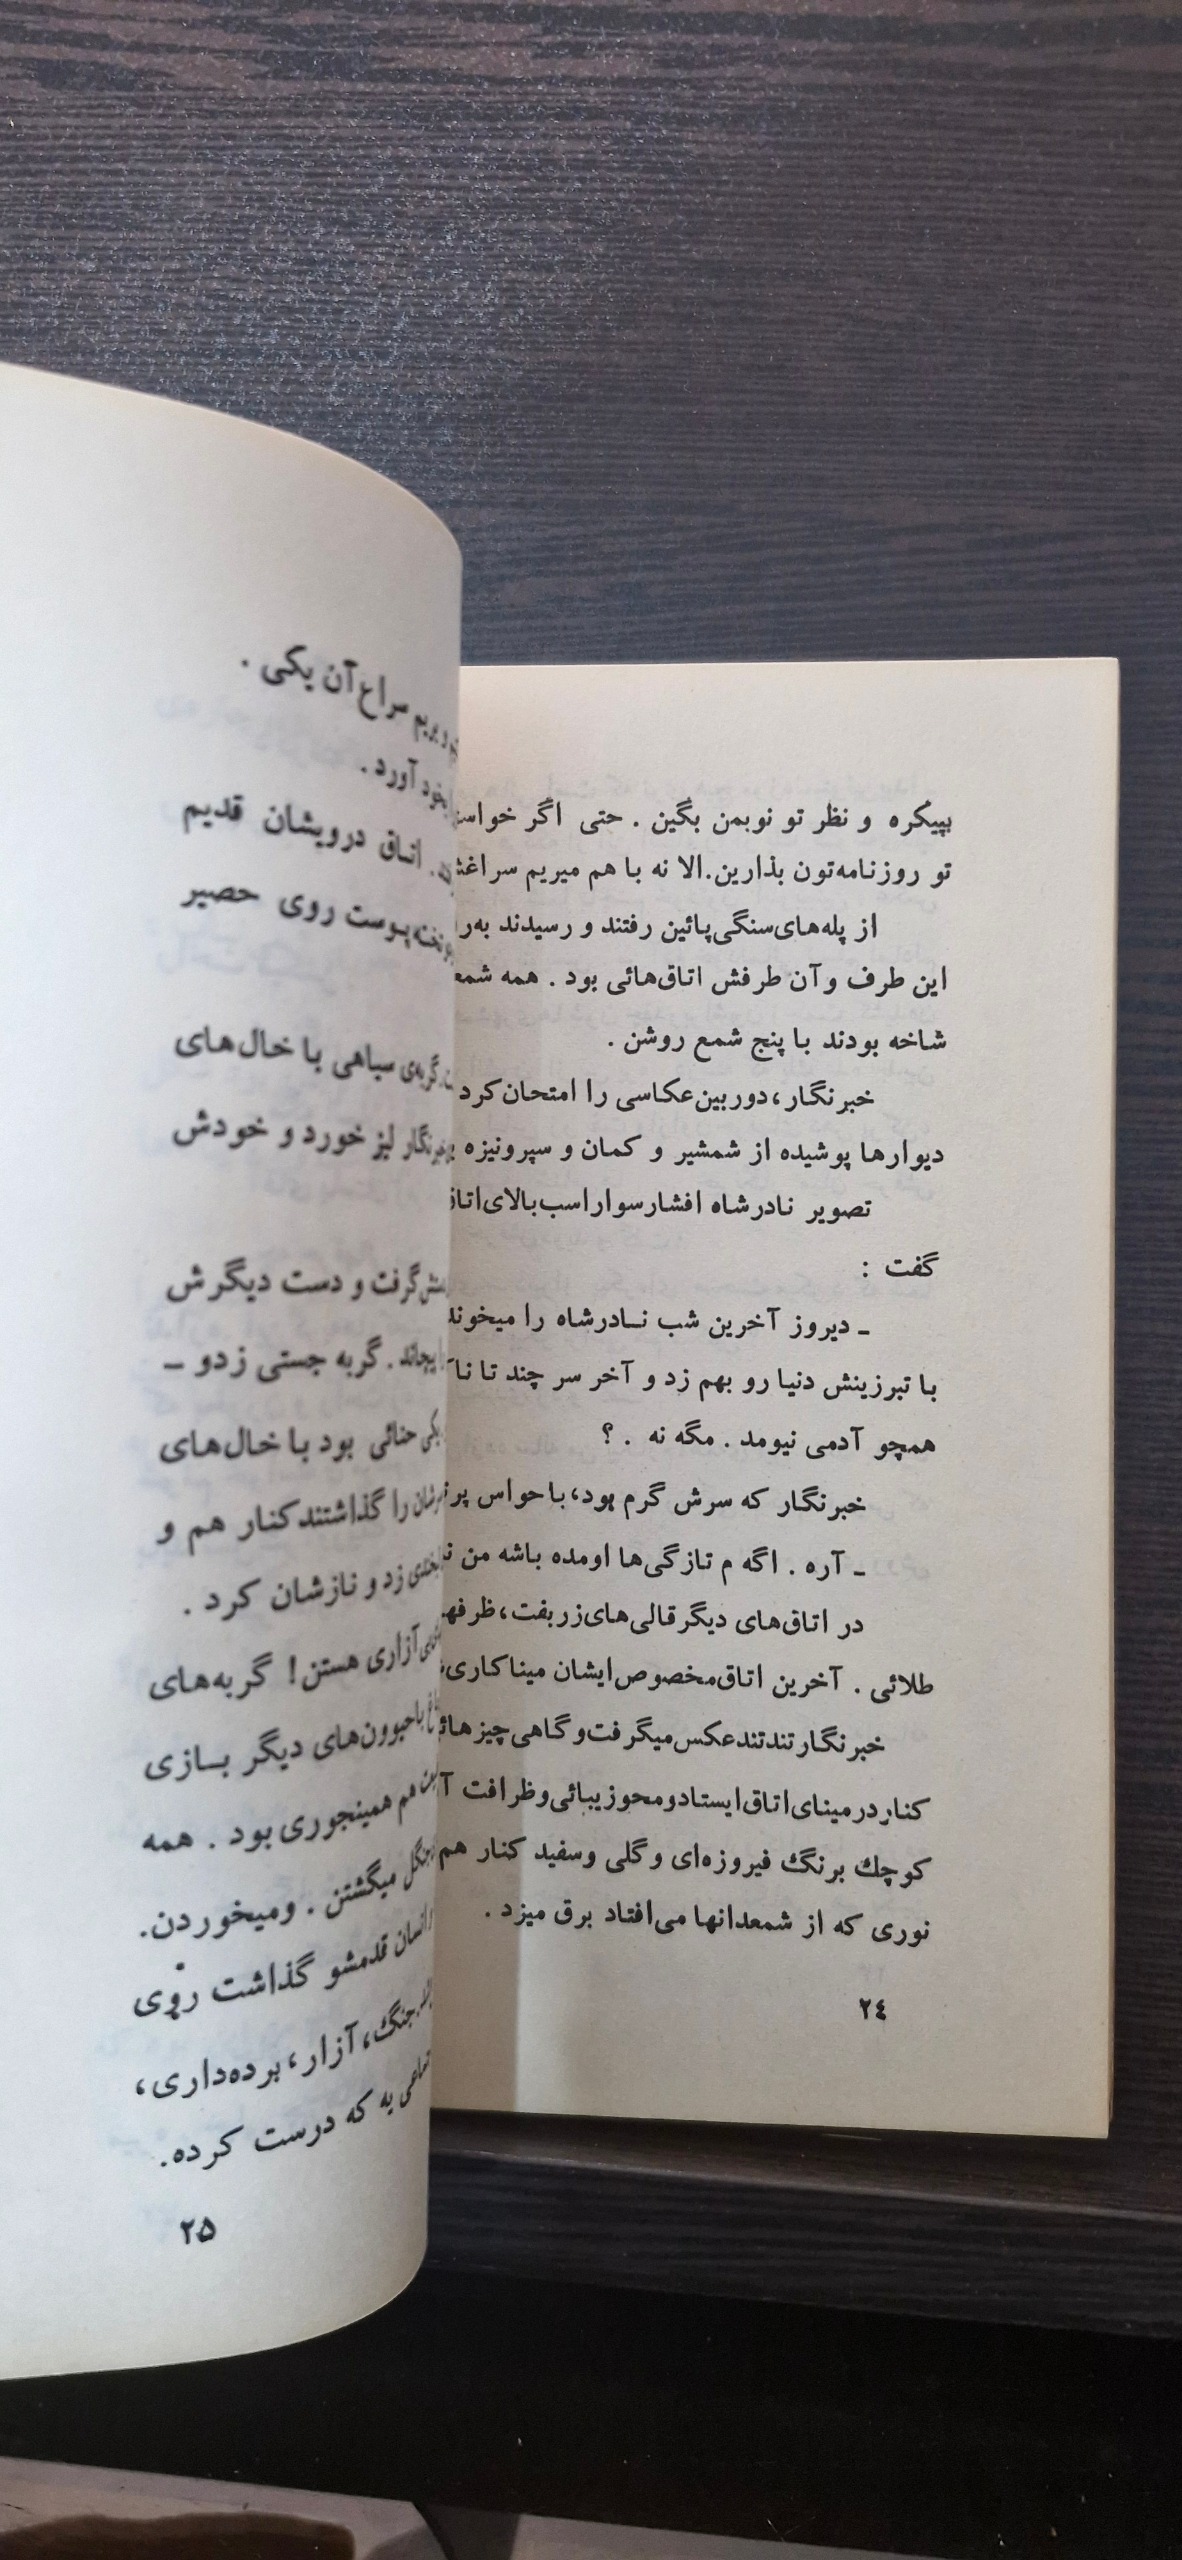 بپیکره و نظر تو نوبمن بگین . حتی اگر
تو روزنامه‌تون بذارین. الا نه با هم میریم
از پله‌های سنگی پائین رفتند و رسیدند
این طرف و آن طرفش اتاق‌هائی بود . همه
شاخه بودند با پنج شمع روشن .
خبرنگار، دوربین عکاسی را امتحان کرد
دیوارها پوشیده از شمشیر و کمان و سپر و نیزه
تصویر نادرشاه افشار سوار اسب بالای
گفت :
ـ دیروز آخرین شب نـادرشاه را
با تبرزینش دنیا رو بهم زد و آخر سر چند تا
همچو آدمی نیومد . مگه نه . ؟
خبرنگار که سرش گرم بود، با حواس
ـ آره . اگه م تازگی‌ها اومده باشه من
در اتاق‌های دیگر قالی‌های زربفت،
طلائی . آخرین اتاق مخصوص ایشان میناکاری
خبرنگار تند تند عکس میگرفت و گاهی
کنار در مینای اتاق ایستاد و محو زیبائی و ظرافت
کوچك برنگ فیروزه‌ای و گلی و سفید کنار هم
نوری که از شمعدانها می‌افتاد برق میزد .
۲٤
بریم سراغ آن یکی .
بخود آورد .
اتـاق درویشان قدیم
تخته‌پوست روی حصیر
گربه‌ی سیاهی با خال‌های
خبرنگار لیز خورد و خودش
گرفت و دست دیگرش
گربه جستی زدو ـ
یکی حنائی بود با خال‌های
را گذاشتند کنار هم و
زد و نازشان کرد .
آزاری هستن! گربه‌های
باحیوون‌های دیگر بـازی
هم همینجوری بود . همه
جنگل میگشتن . ومیخوردن.
انسان قدمشو گذاشت روی
جنگ، آزار، برده‌داری،
یه که درست کرده.
۲۵